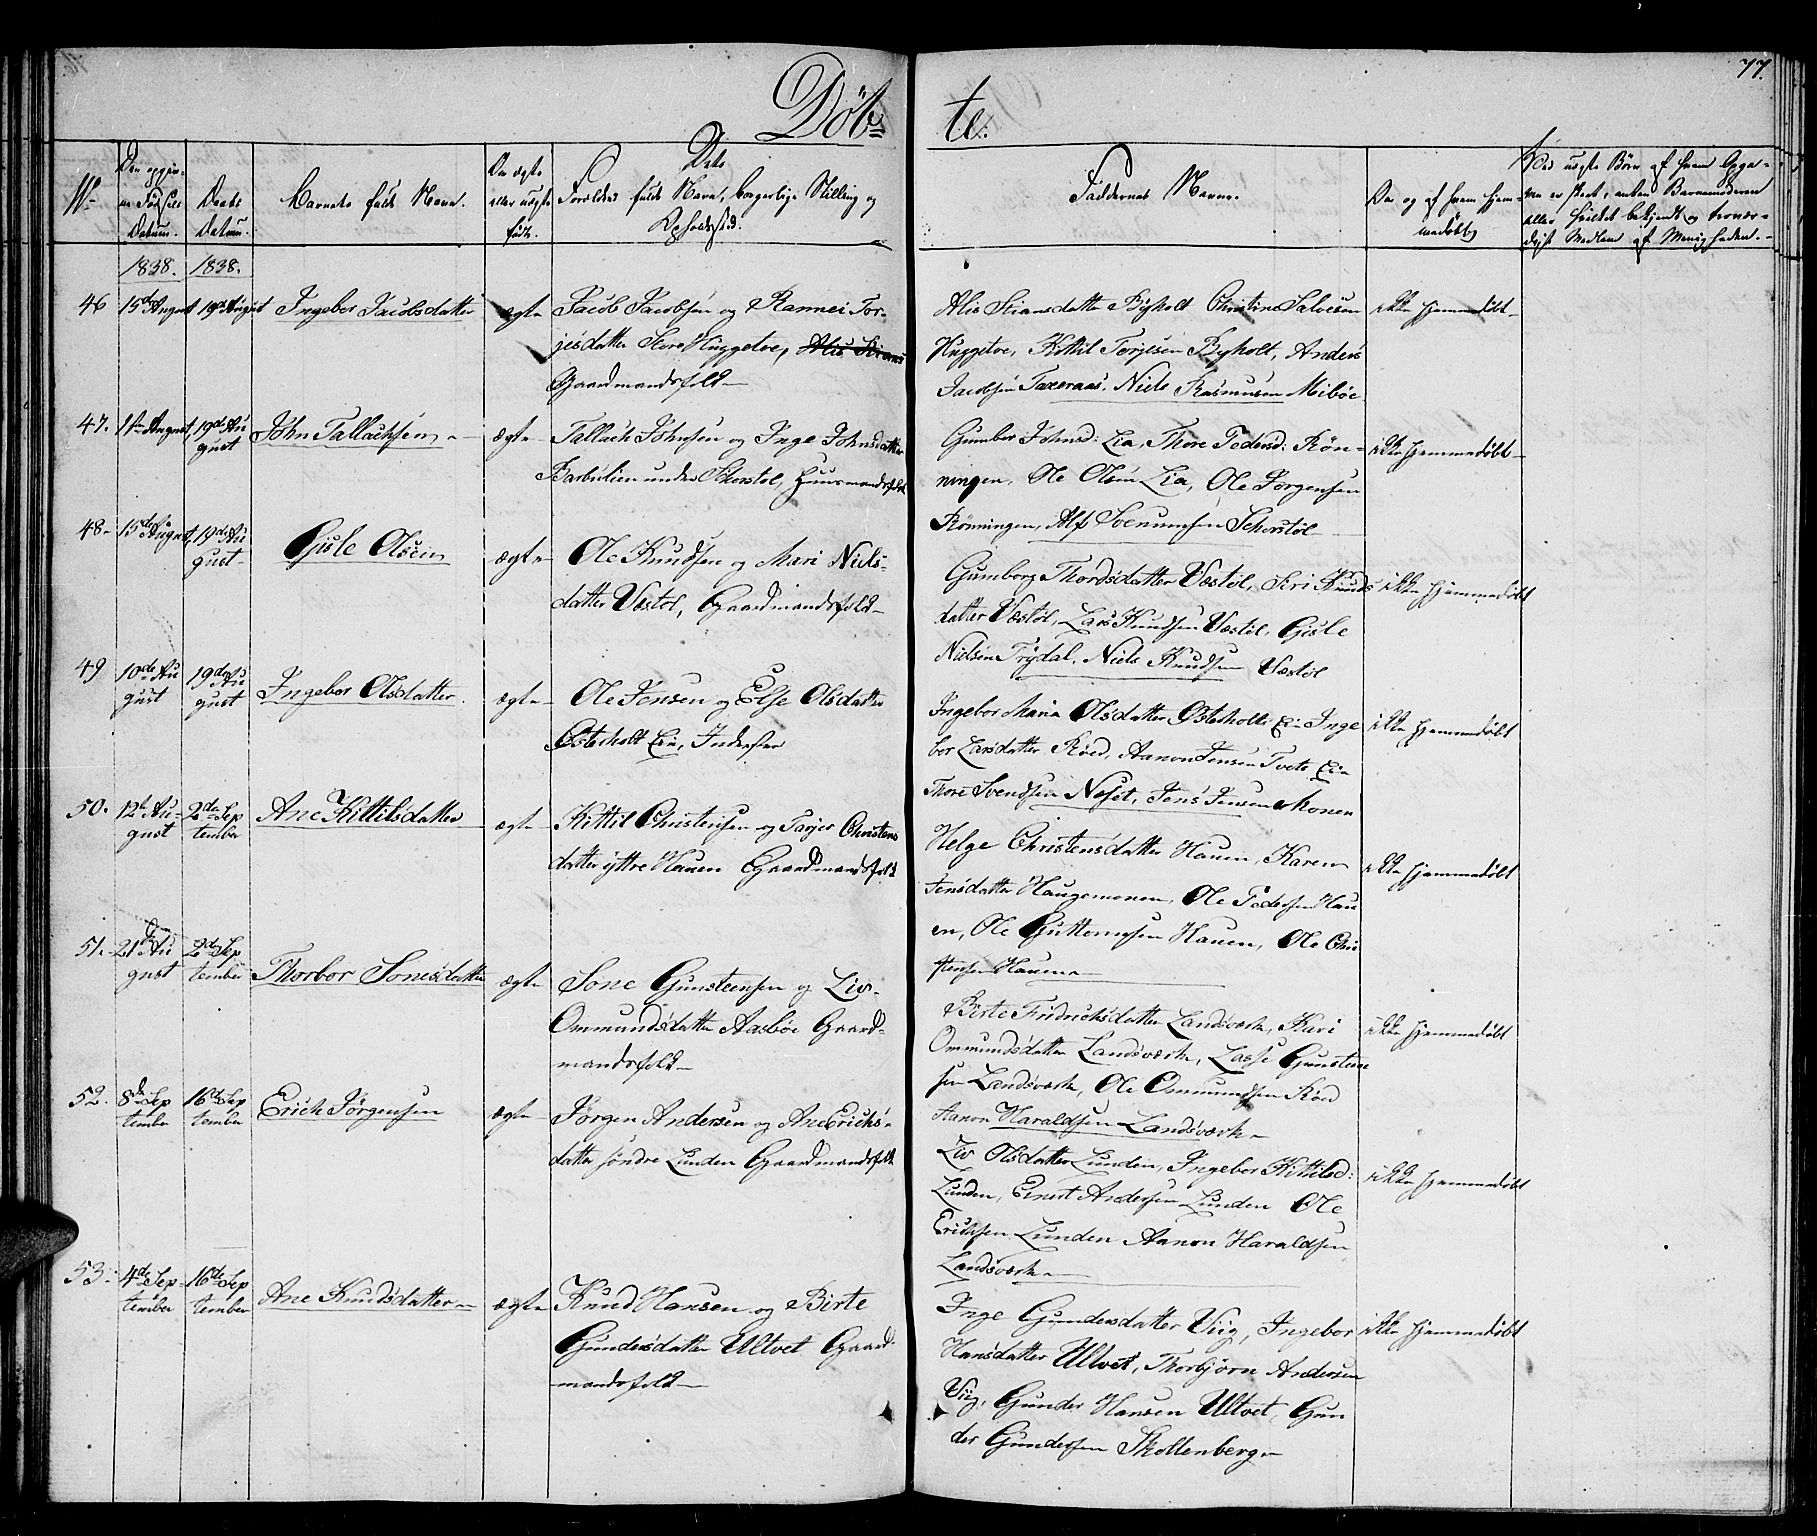 77.
Döb=
te.
No
Den opgiv-
ne Fødsels
Datum.
Daabs
Datum.
Barnets fulde Navn.
Om ægte
eller uægte
født.
Dets
Forældres fulde Navn, borgerlige Stilling og
Opholdssted.
Faddernes Navne.
Om og af hvem hjem-
medøbt
Ved uægte Børn af hvem Opga-
ven er skeet, enten Barnemoderen
eller hvilket bekjendt og troevær-
digt Medlem af Menigheden.
1838. 1838.
46 15de August 19de August Ingebor Jacobsdatter ægte Jacob Jacobsen og Rannei Tor-
jesdatter Store Huggetve, Alis Stians
Gaardmandsfolk
Alis Stiansdatter Byholt Christine Salvesen
Huggetve, Kittil Torjesen Byholt, Anders
Jacobsen Taxeraas. Niels Rasmusen Meibøe
ikke hjemmedøbt
47. 11te August 19de Au
gust
John Tallachsen ægte Tallach Johnsen og Inge Johnsdatter
Barbulien under Skorstøl, Huusmandsfolk
Gunbor Johnsd: Lia, Thore Pedersd: Røn-
ningen, Ole Olsen Lia, Ole Jørgensen
Rönningen, Alf Svenumsen Schorstöl
ikke hjemmedøbt
48 15de August 19de Au
gust
Gisle Olsen ægte Ole Knudsen og Mari Niels-
datter Væstøl, Gaardmandsfolk
Gumborg Thordsdatter Væstøl, Siri Knuds
datter Væstøl, Lars Knudsen Væstøl, Gisle
Nielsen Trydal, Niels Knudsen Væstøl
ikke hjemmedøbt
49 10de Au
gust
19de Au
gust
Ingebor Olsdatter ægte Ole Jensen og Else Olsdatter
Østerholt Eie, Inderster
Ingebor Maria Olsdatter Østerholt Eie Inge
bor Larsdatter Røed, Aanon Jensen Tvete Eie
Thore Svendsen Næset, Jens Jensen Monen
ikke hjemmedøbt
50. 12te Au
gust
2den Sep
tember
Ane Kittilsdatter ægte Kittil Christensen og Tarjer Christens
datter yttre Hauen Gaardmandsfolk
Helge Christensdatter Hauen, Karen
Jensdatter Haugemonen, Ole Pedersen Hau
en, Ole Guttormsen Hauen, Ole Chri
stensen Hauen
ikke hjemmedøbt
51. 21de Au
gust
2de Sep
tember
Thorbor Sonesdatter ægte Sone Gunsteensen og Liv
Ommundsdatter Aasbøe Gaard-
mandsfolk
Birte Fridrichsdatter Landsværk, Kari
Ommundsdatter Landsværk, Lasse Gunsteen
sen Landsværk, Ole Ommundsen Röed
Aanon Haraldsen Landsværk
ikke hjemmedøbt
52. 8de Sep
tember
16de Sep
tember
Erich Jørgensen ægte Jørgen Andersen og Ane Erichs-
datter søndre Lunden Gaardmandsfolk
Liv Olsdatter Lunden, Ingebor Kittilsd:
Lunden, Ernst Andersen Lunden Ole
Erichsen Lunden Aanon Haraldsen
Landsværk
ikke hjemmedøbt
53. 4de Sep
tember
16de Sep
tember
Ane Knudsdatter ægte Knud Hansen og Birte
Gundersdatter Ultvet Gaard
mandsfolk
Inge Gundersdatter Viig, Ingebor
Hansdatter Ultvet, Thorbjørn Andersen
Viig, Gunder Hansen Ultvet, Gun
der Gundersen Skollenberg
ikke hjemmedøbt